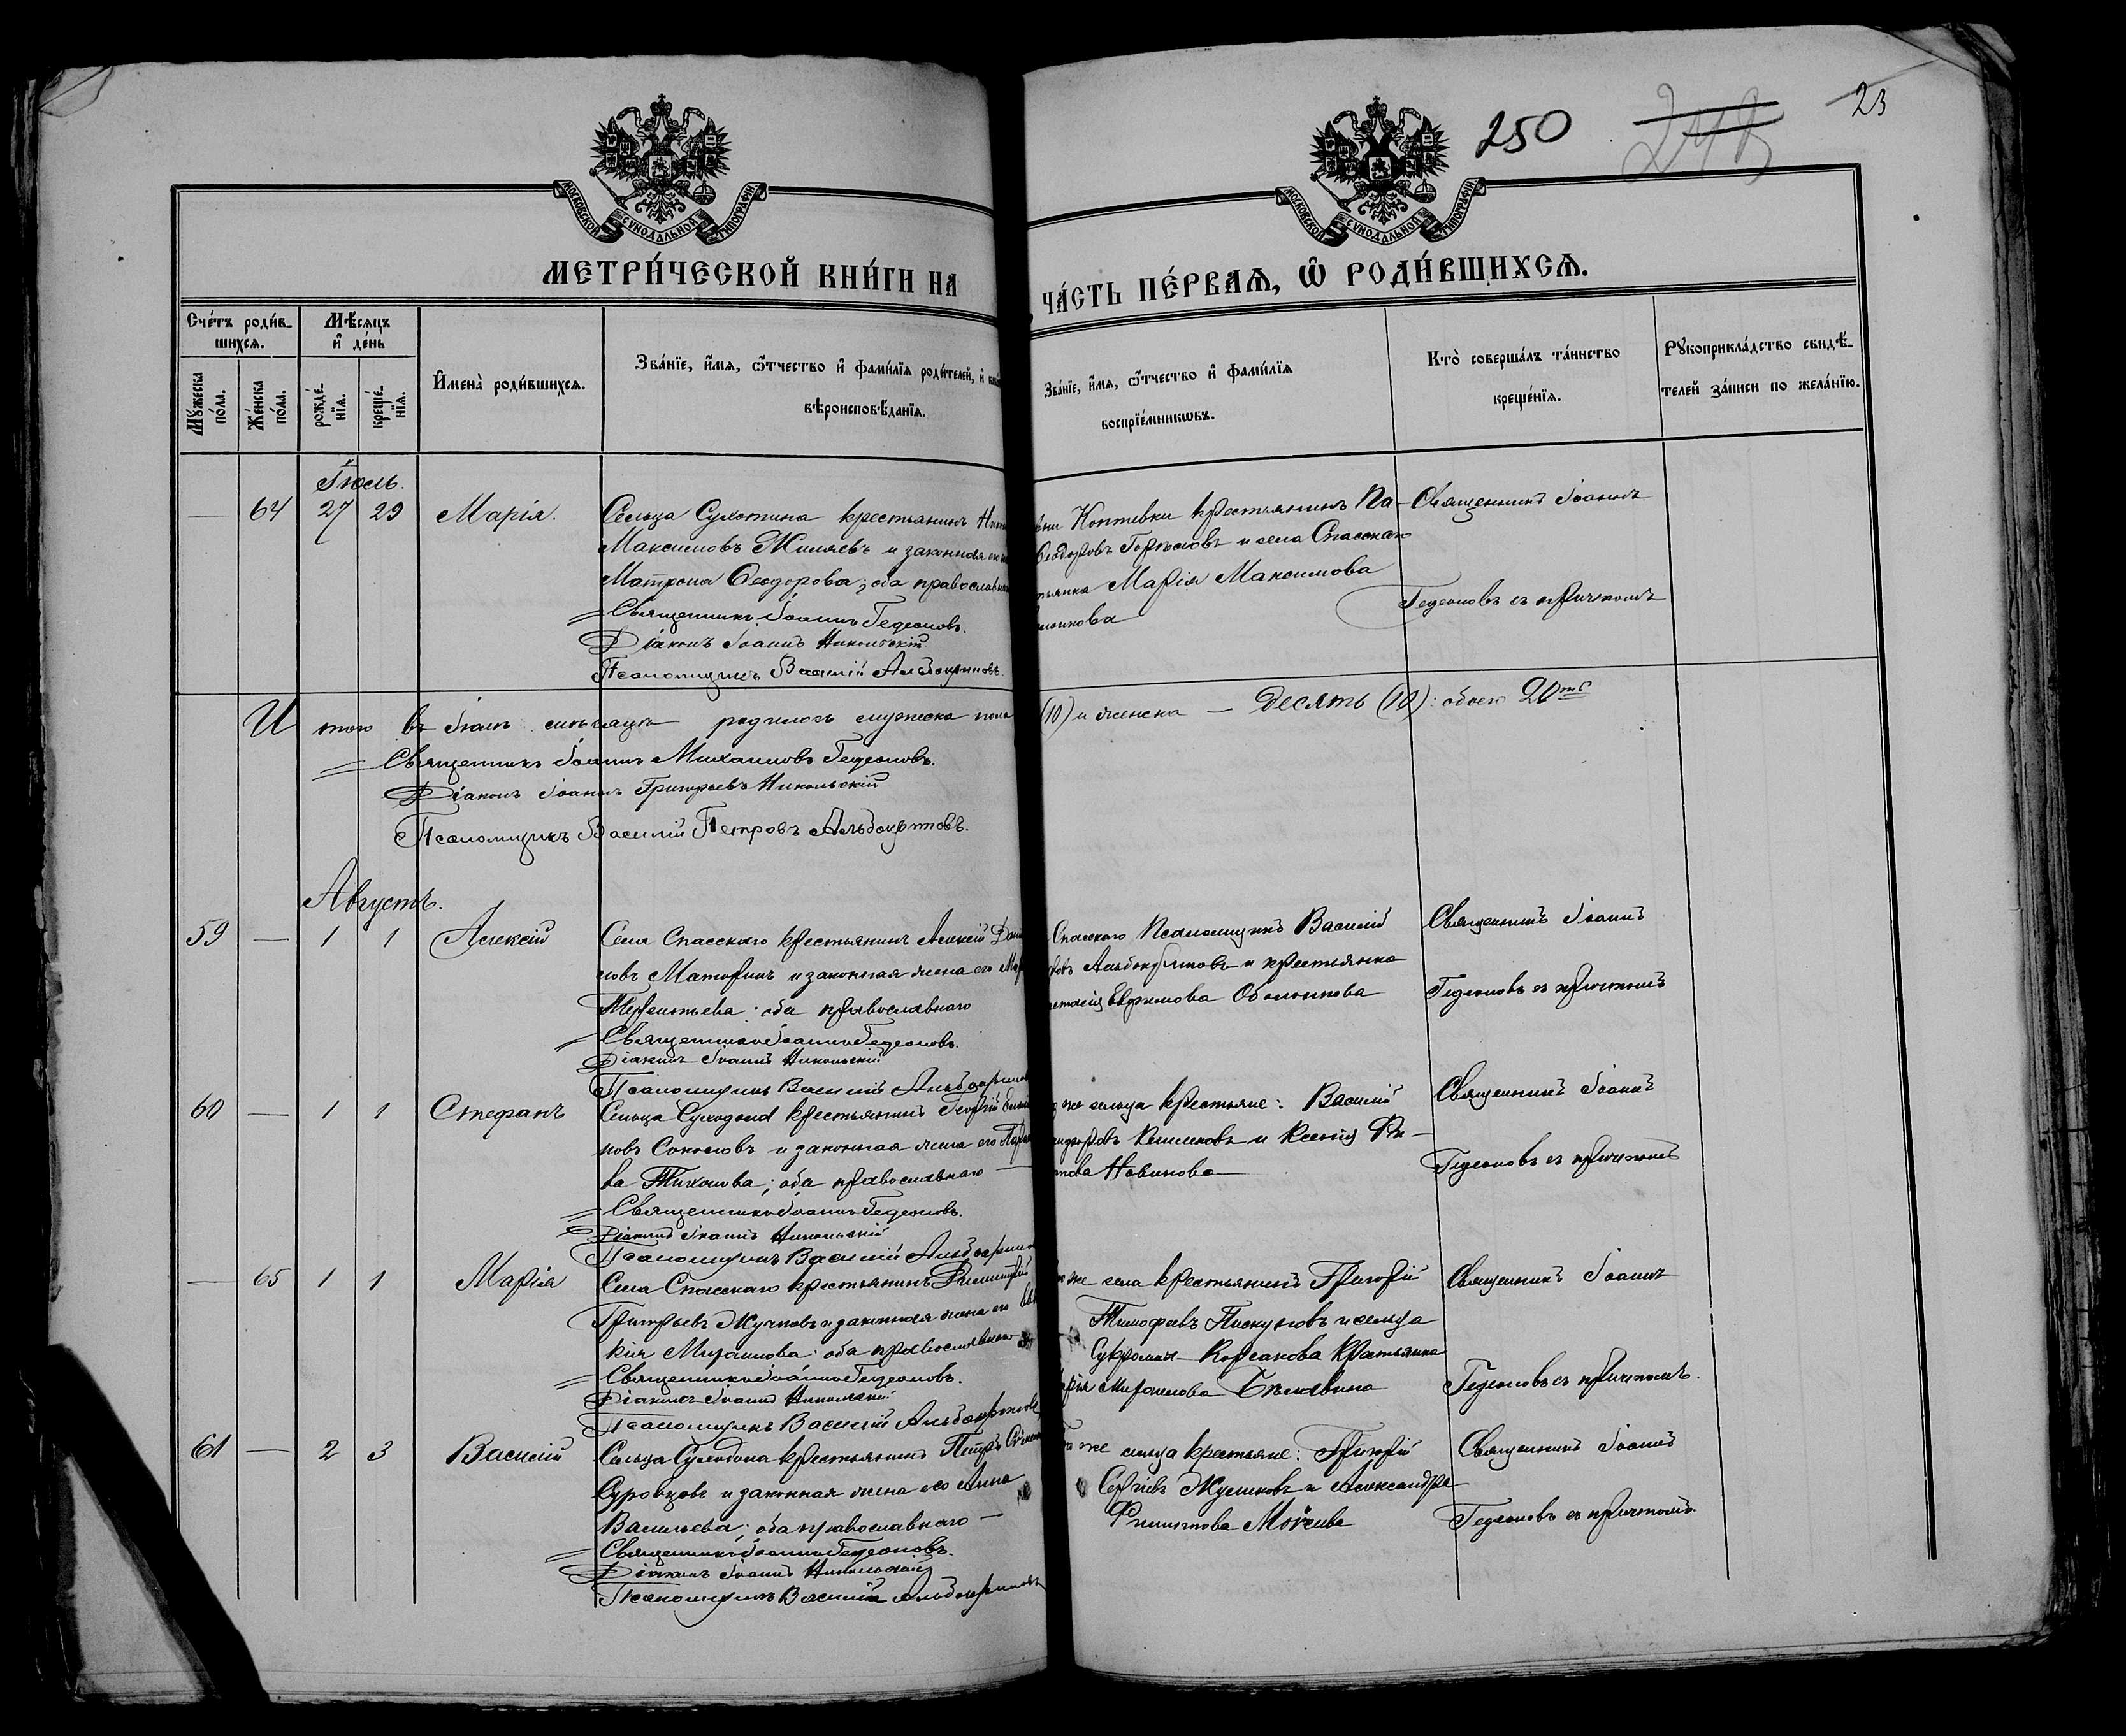 250
23
МОСКОВСКОЙ СУНОДАЛЬНОЙ ТИПОГРАФІИ.
МОСКОВСКОЙ СУНОДАЛЬНОЙ ТИПОГРАФІИ.
МЕТРИ́ЧЕСКОЙ КНИ́ГИ НА
ЧА́СТЬ ПЕ́РВАѦ, Ѡ҆ РОДИ́ВШИХСѦ.
Сче́тъ роди́в-
шихсѧ.
Мѣ́сѧцъ
и҆ де́нь
Мꙋ́жеска
по́ла.
Же́нска
по́ла.
рожде́-
нїѧ.
креще́-
нїѧ.
И҆мена̀ роди́вшихсѧ.
Зва́нїе, и҆́мѧ, ѻ҆́тчество и҆ фами́лїѧ роди́телей, и҆
вѣроисповѣ́данїѧ.
Зва́нїе, и҆́мѧ, ѻ҆́тчество и҆ фами́лїѧ
воспрїе́мникѡвъ.
Кто̀ соверша́лъ та́инство
креще́нїѧ.
Рꙋкоприкла́дство свидѣ́-
телей за́писи по жела́нїю.
Іюль.
— 64 27 29 Марія.
Сельца Сухотина крестьянинъ
Максимовъ Жиляевъ и законная его
Матрона Ѳеодорова; оба православнаго
Священникъ Іоаннъ Гедеоновъ.
Діаконъ Іоаннъ Никольскій
Псаломщикъ Василій Альбокриновъ.
Коптевки крестьянинъ Па-
Ѳеодоровъ и села Спасскаго
Марія Максимова
Священникъ Іоаннъ
Гедеоновъ съ причтомъ
Итого въ Іюлѣ мѣсяцѣ родилось мужска пола
(10) и женска — десять (10): обоего 20ть
Священникъ Іоаннъ Михаиловъ Гедеоновъ.
Діаконъ Іоаннъ Григорьевъ Никольскій
Псаломщикъ Василій Петровъ Альбокриновъ.
Августъ.
59 — 1 1 Алексій
Села Спасскаго крестьянинъ Алексій
новъ Маторинъ и законная жена его
Терентьева; оба православнаго
Священникъ Іоаннъ Гедеоновъ.
Діаконъ Іоаннъ Никольскій
Псаломщикъ Василій Альбокриновъ
Спасскаго Псаломщикъ Василій
Альбокриновъ и крестьянка
Евфимова
Священникъ Іоаннъ
Гедеоновъ съ причтомъ
60 — 1 1 Стефанъ
Сельца Суходола крестьянинъ Георгій
новъ Соколовъ и законная жена его
ва Тихонова; оба православнаго —
Священникъ Іоаннъ Гедеоновъ.
Діаконъ Іоаннъ Никольскій
Псаломщикъ Василій Альбокриновъ
же сельца крестьяне: Василій
и Ксенія Фи-
Новикова
Священникъ Іоаннъ
Гедеоновъ съ причтомъ
— 65 1 1 Марія
Села Спасскаго крестьянинъ Димитрій
Григорьевъ и законная жена его
кія Михаилова; оба православнаго
Священникъ Іоаннъ Гедеоновъ.
Діаконъ Іоаннъ Никольскій
Псаломщикъ Василій Альбокриновъ
же села крестьянинъ Григорій
Тимофеевъ Пискуновъ и сельца
Корсакова крестьянка
Священникъ Іоаннъ
Гедеоновъ съ причтомъ.
61 — 2 3 Василій
Сельца Суходола крестьянинъ Петръ
Суровцовъ и законная жена его Анна
Васильева; оба православнаго —
Священникъ Іоаннъ Гедеоновъ.
Діаконъ Іоаннъ Никольскій
Псаломщикъ Василій Альбокриновъ
же сельца крестьяне: Григорій
Сергіевъ и Александра
Филиппова
Священникъ Іоаннъ
Гедеоновъ съ причтомъ.